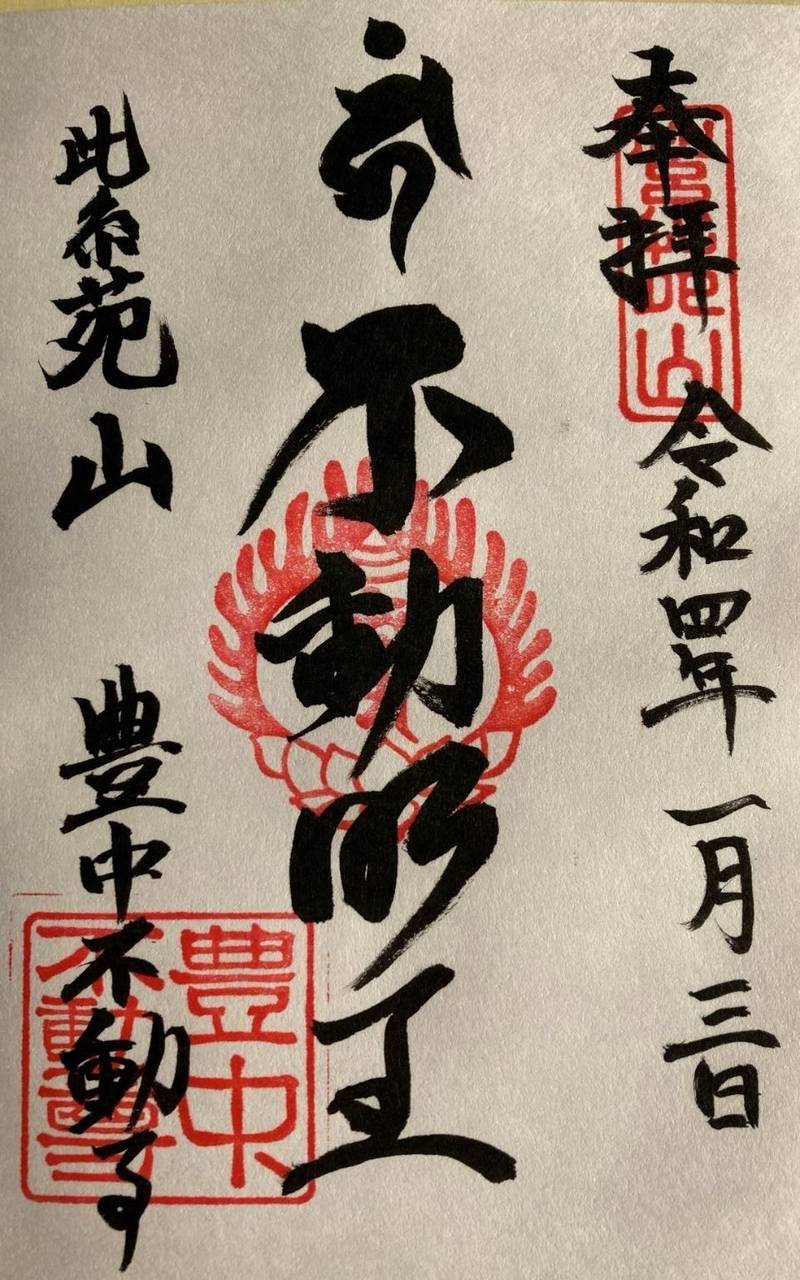 奉拝 令和四年 一月三日
不動明王
紫苑山 豊中不動寺
豊中
不動